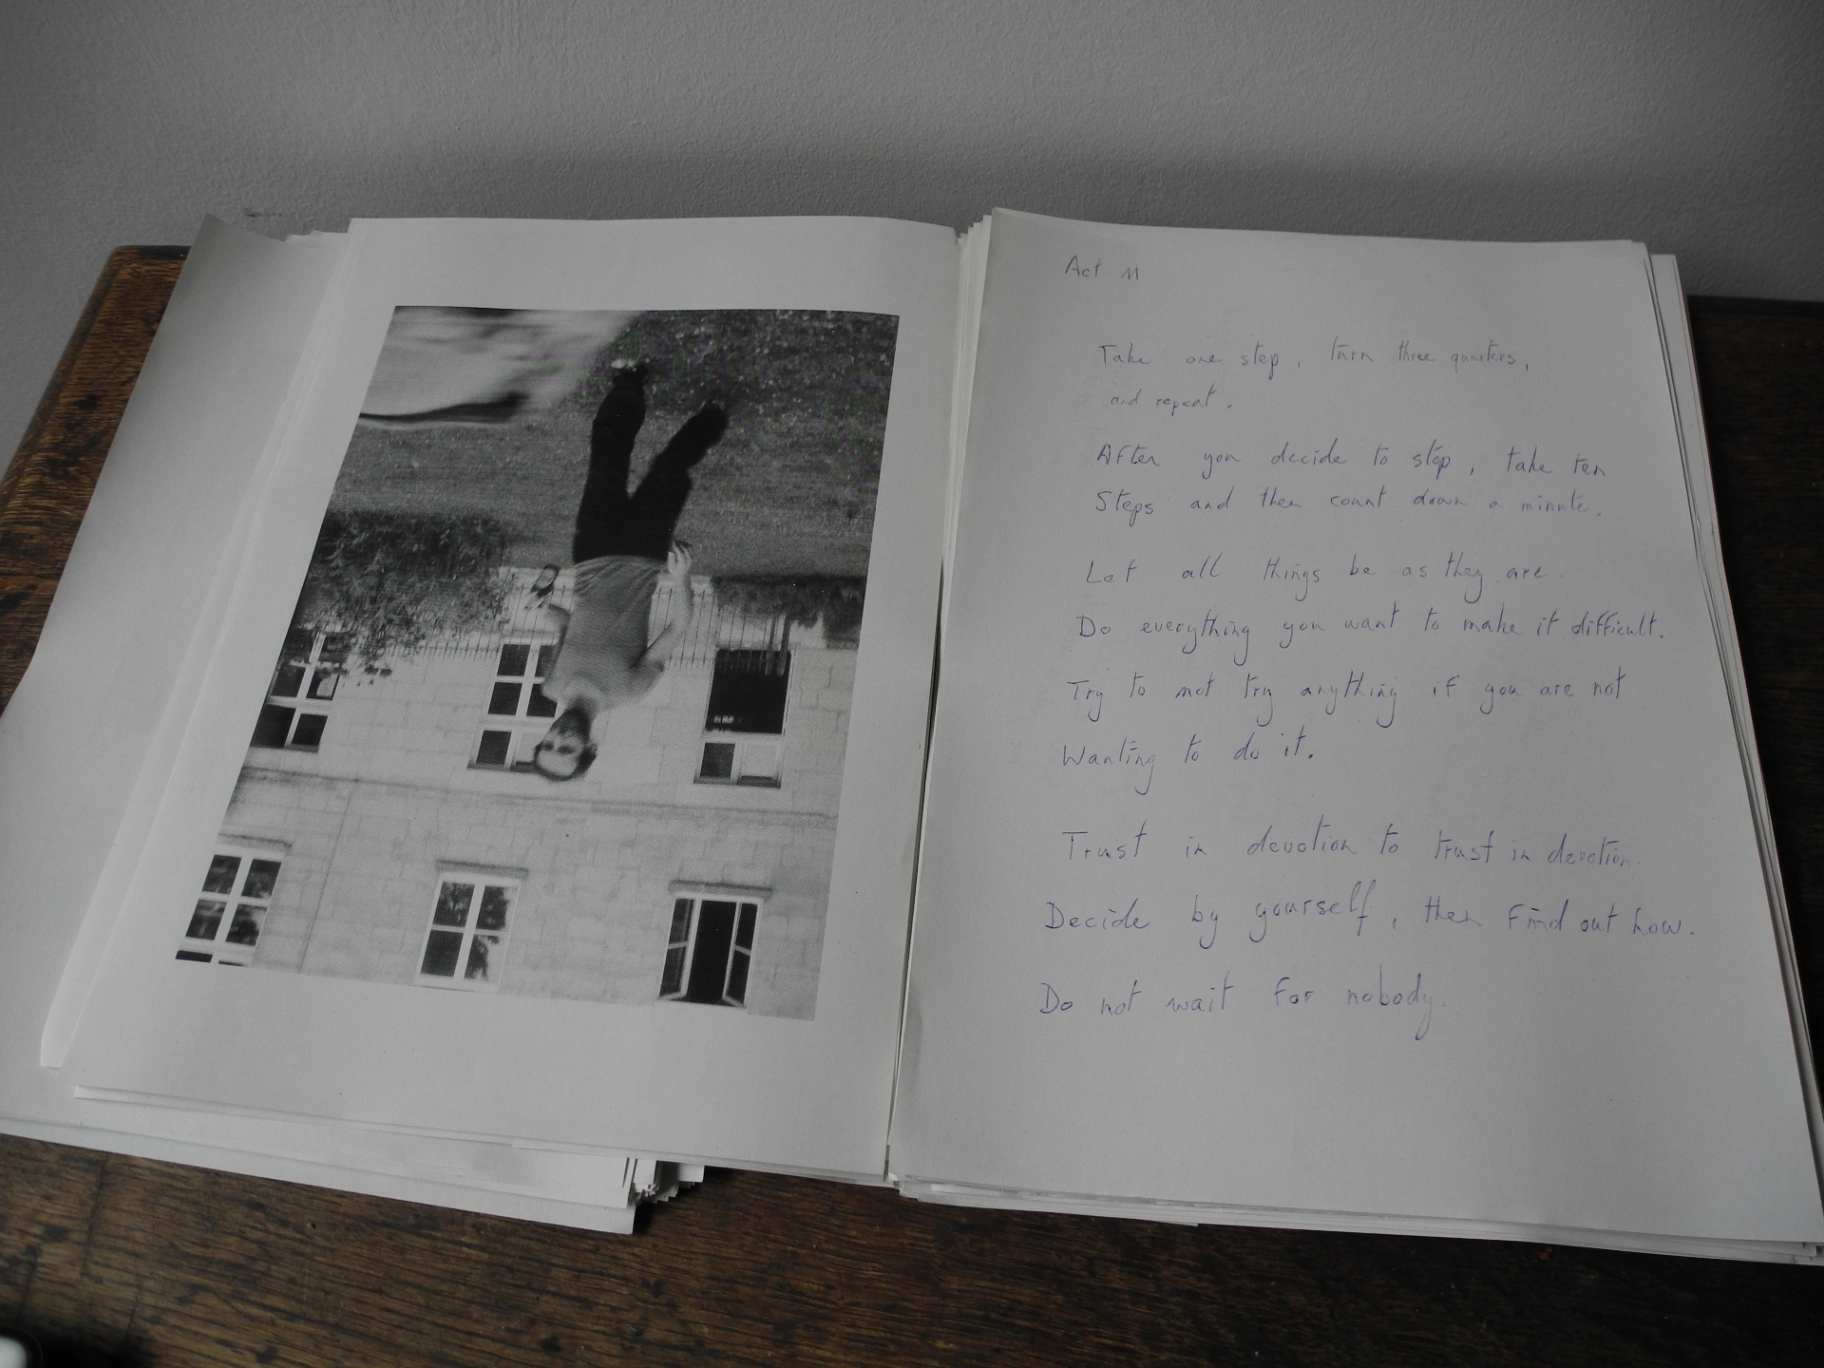 Act 11
Take one step, turn three quarters,
and repeat.
After you decide to stop, take ten
Steps and then count down a minute.
Let all things be as they are.
Do everything you want to make it difficult.
Try to not try anything if you are not
Wanting to do it.
Trust in devotion to trust in devotion.
Decide by yourself, then Find out how.
Do not wait for nobody.